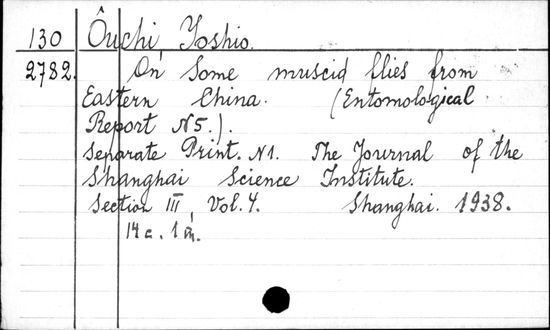 130 Ôuchi, Yoshio.
2782. On Some muscid flies from
Eastern China. (Entomological
Report N5.).
Separate Print. N1. The Journal of the
Shanghai Science Institute.
Section III, Vol. 4. Shanghai. 1938.
14 c. 1